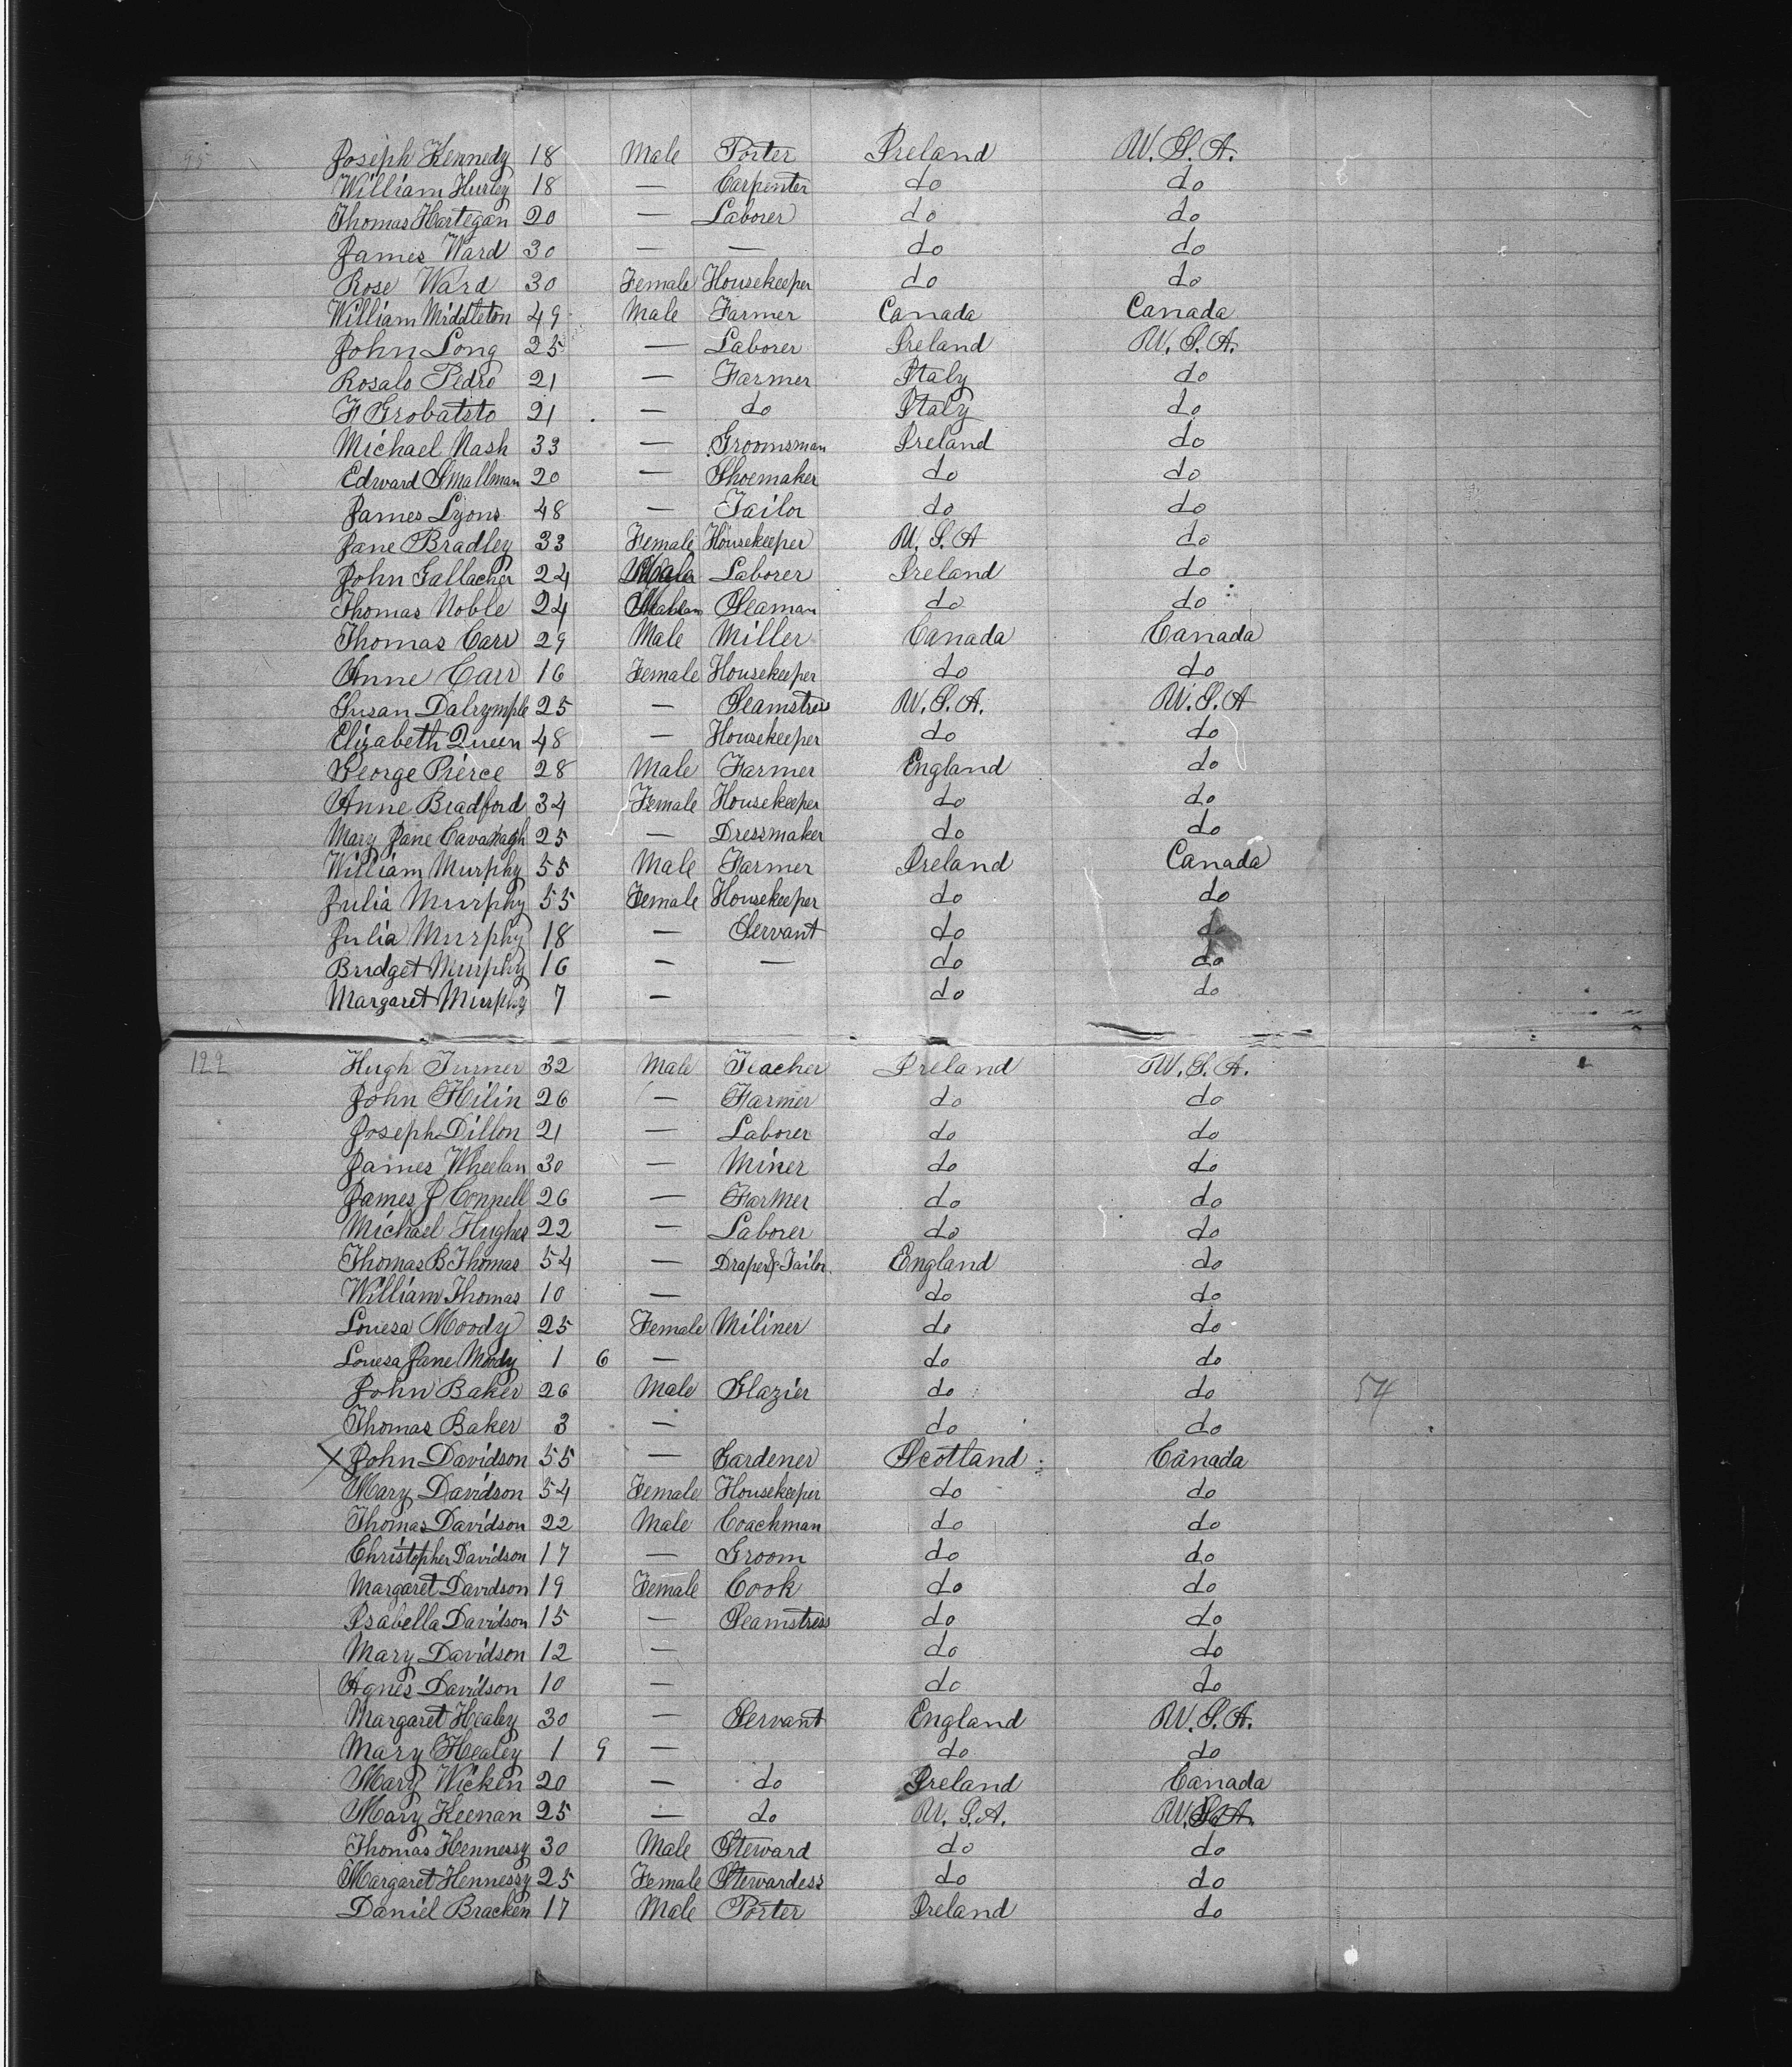 95 Joseph Kennedy 18 Male Porter Ireland U.S.A.
William Hurley 18 — Carpenter do do
Thomas Hartegan 20 — Laborer do do
James Ward 30 — — do do
Rose Ward 30 Female Housekeeper do do
William Middleton 49 Male Farmer Canada Canada
John Long 25 — Laborer Ireland U.S.A.
Rosalo Pedro 21 — Farmer Italy do
F Grobatsto 21 — do Italy do
Michael Nash 33 — Groomsman Ireland do
Edward Smallman 20 — Shoemaker do do
James Lyons 48 — Tailor do do
Jane Bradley 33 Female Housekeeper U.S.A do
John Gallacher 24 Male Laborer Ireland do
Thomas Noble 24 Seaman do do
Thomas Carr 29 Male Miller Canada Canada
Anne Carr 16 Female Housekeeper do do
Susan Dalrymple 25 — Seamstress U.S.A. U.S.A
Elizabeth Queen 48 — Housekeeper do do
George Pierce 28 Male Farmer England do
Anne Bradford 34 Female Housekeeper do do
Mary Jane Cavanagh 25 — Dressmaker do do
William Murphy 55 Male Farmer Ireland Canada
Julia Murphy 55 Female Housekeeper do do
Julia Murphy 18 — Servant do do
Bridget Murphy 16 — — do do
Margaret Murphy 7 — do do
122 Hugh Turner 32 Male Teacher Ireland U.S.A.
John Hilin 26 — Farmer do do
Joseph Dillon 21 — Laborer do do
James Wheelan 30 — Miner do do
James J Connell 26 — Farmer do do
Michael Hughes 22 — Laborer do do
Thomas B Thomas 54 — Draper & Tailor England do
William Thomas 10 — do do
Louesa Moody 25 Female Miliner do do
Louesa Jane Moody 1 6 — do do
John Baker 26 Male Glazier do do 54
Thomas Baker 3 — do do
X John Davidson 55 — Gardener Scotland Canada
Mary Davidson 54 Female Housekeeper do do
Thomas Davidson 22 Male Coachman do do
Christopher Davidson 17 — Groom do do
Margaret Davidson 19 Female Cook do do
Isabella Davidson 15 — Seamstress do do
Mary Davidson 12 — do do
Agnes Davidson 10 — do do
Margaret Healey 30 — Servant England U.S.A.
Mary Healey 1 9 — do do
Mary Wicken 20 — do Ireland Canada
Mary Keenan 25 — do U.S.A. U.S.A.
Thomas Hennessy 30 Male Steward do do
Margaret Hennessy 25 Female Stewardess do do
Daniel Bracken 17 Male Porter Ireland do